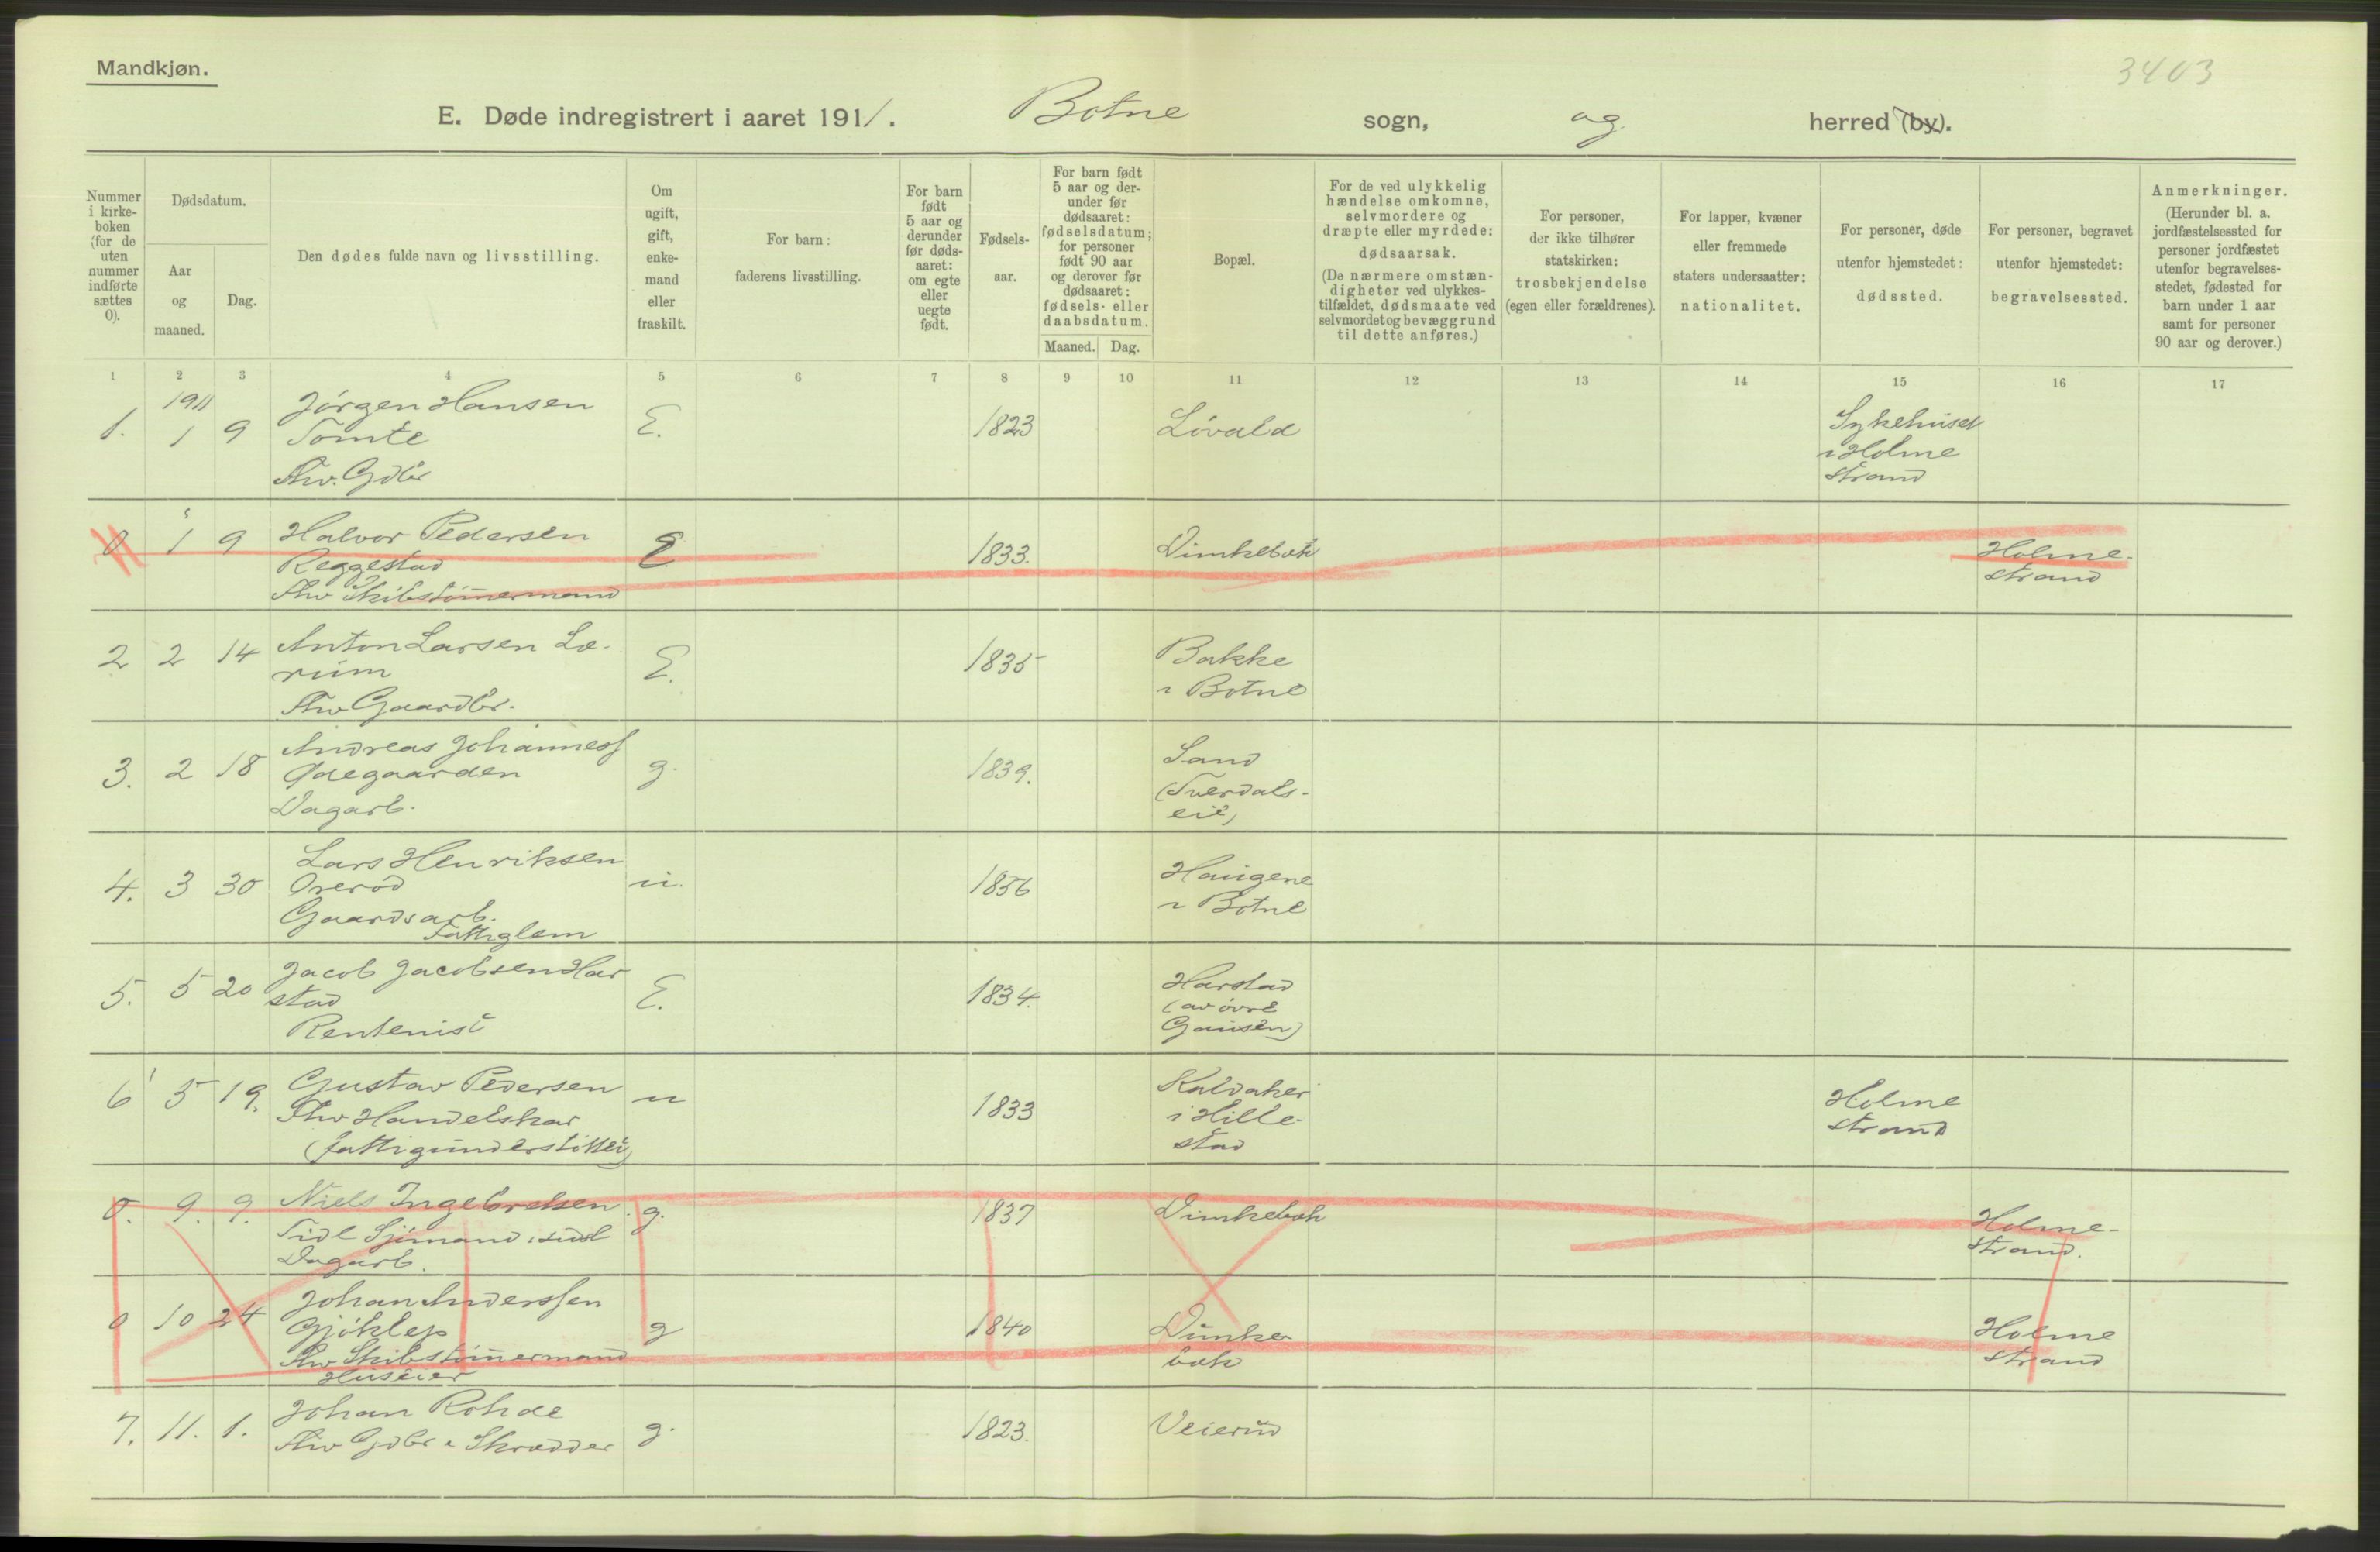 Mandkjøn.
3403
E. Døde indregistrert i aaret 1911. Botne sogn, og herred (by).
Nummer i kirke-boken (for de uten nummer indførte sættes 0).
Dødsdatum.
Aar og maaned.
Dag.
Den dødes fulde navn og livsstilling.
Om ugift, gift, enke-mand eller fraskilt.
For barn: faderens livsstilling.
For barn født 5 aar og derunder før døds-aaret: om egte eller uegte født.
Fødsels-aar.
For barn født 5 aar og der-under før dødsaaret: fødselsdatum; for personer født 90 aar og derover før dødsaaret: fødsels- eller daabsdatum.
Maaned. Dag.
Bopæl.
For de ved ulykkelig hændelse omkomne, selvmordere og dræpte eller myrdede: dødsaarsak. (De nærmere omstæn-digheter ved ulykkes-tilfældet, dødsmaate ved selvmordet og bevæggrund til dette anføres.)
For personer, der ikke tilhører statskirken: trosbekjendelse (egen eller forældrenes).
For lapper, kvæner eller fremmede staters undersaatter: nationalitet.
For personer, døde utenfor hjemstedet: dødssted.
For personer, begravet utenfor hjemstedet: begravelsessted.
Anmerkninger. (Herunder bl. a. jordfæstelsessted for personer jordfæstet utenfor begravelses-stedet, fødested for barn under 1 aar samt for personer 90 aar og derover.)
1 2 3 4 5 6 7 8 9 10 11 12 13 14 15 16 17
1911 Jørgen Hansen
1. 1 9 Tomte E. 1823 Lövald Sykehuset
i Holme
Fhv. Gdbr strand
0 1 9 Halvor Pedersen E 1833. Dimkebok Holme-
Reggestad strand
Fhv Skibstömermand
2 2 14 Anton Larsen Læ- E. 1835 Bakke
rum i Botne
Fhv Gaardbr.
3. 2 18 Andreas Johanness g. 1839. Sand
Ødegaarden (Tverdals-
Dagarb. eie)
4. 3 30 Lars Henriksen u. 1856 Haugene
Oreröd i Botne
Gaardsarb.
Fattiglem
5. 5 20 Jacob Jacobsen Har E. 1834. Harstad
stad (av övre
Rentenist Gausen)
6 5 19. Gustav Pedersen u 1833 Kaldaker Holme
Fhv Handelskar i Hille- strand
(fattigunderstöttet) stad
0. 9. 9. Niels Ingebretsen g. 1837 Dimkebok Holme-
Tidl Sjömand, sidst strand.
Dagarb.
0 10 24 Johan Anderssen g 1840 Dunke Holme
Gjöklep bok strand
Fhv Skibstömermand
Huseier
7. 11. 1. Johan Rohde g. 1823. Veierud
Fhv Gdbr & Skrædder